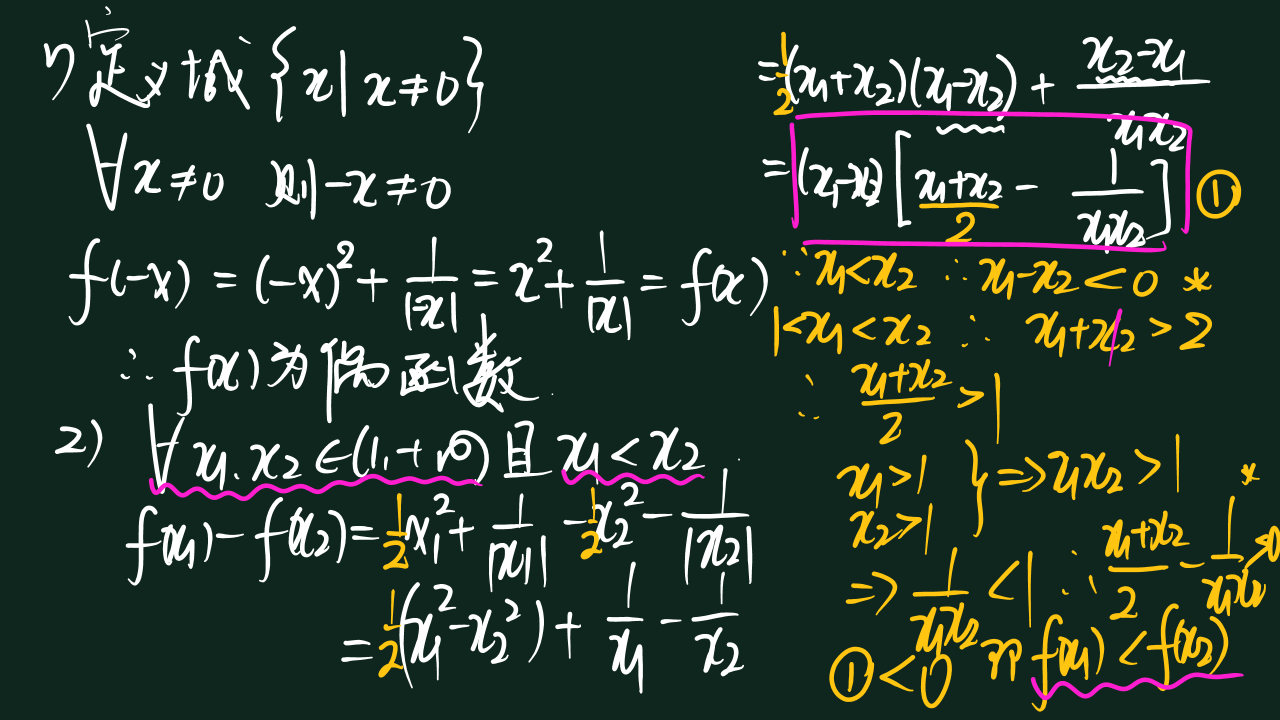 1) 定义域 {x| x≠0}
∀x≠0 则 -x≠0
f(-x) = (-x)² + 1/|-x| = x² + 1/|x| = f(x)
∴ f(x)为偶函数
2) ∀ x₁, x₂ ∈(1,+∞) 且 x₁ < x₂
f(x₁) - f(x₂) = 1/2 x₁² + 1/|x₁| - 1/2 x₂² - 1/|x₂|
= 1/2 (x₁² - x₂²) + 1/x₁ - 1/x₂
= 1/2 (x₁+x₂)(x₁-x₂) + (x₂-x₁)/(x₁x₂)
= (x₁-x₂)[(x₁+x₂)/2 - 1/(x₁x₂)] ①
∵ x₁<x₂ ∴ x₁-x₂<0 *
1<x₁<x₂ ∴ x₁+x₂>2
∴ (x₁+x₂)/2 > 1
x₁>1
x₂>1 } ⇒ x₁x₂>1 *
⇒ 1/(x₁x₂) < 1 ∴ (x₁+x₂)/2 - 1/(x₁x₂) >0
①<0 即 f(x₁) < f(x₂)